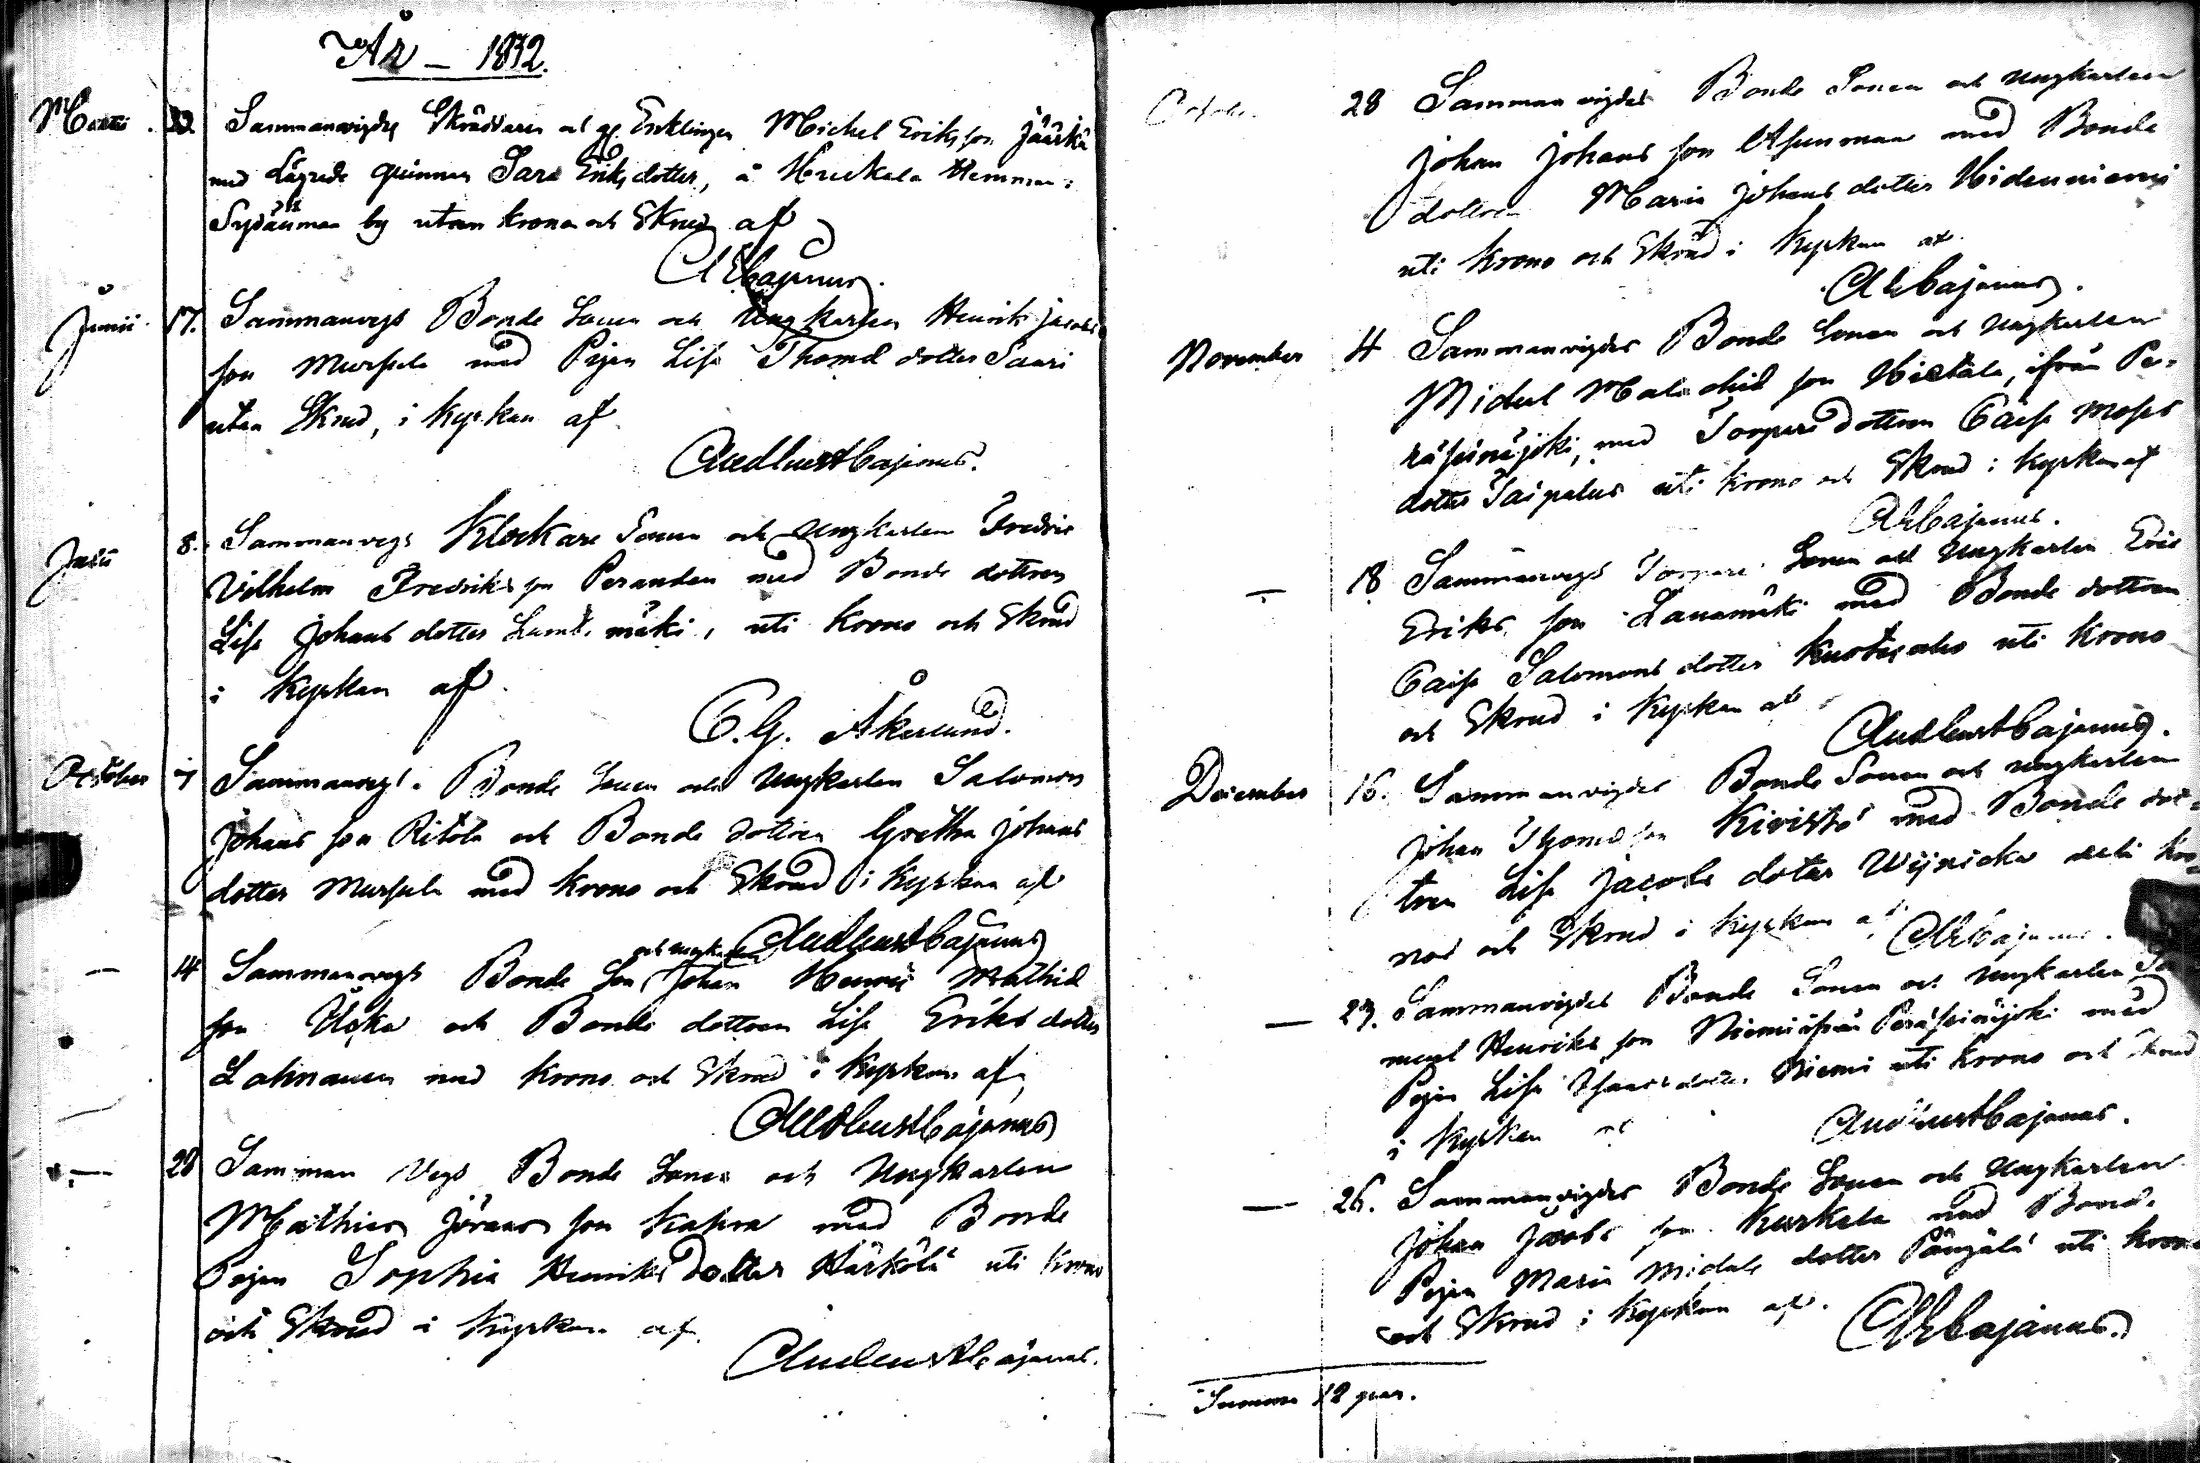 År – 1832.
Martii 22. Sammanvigdes Skräddaren och Enklingen Michel Eriksson Jäärkä
med Lägrade qvinnan Sara Eriksdotter, å Heikala Hemman i
Sydänmaa by utan krona och Skrud af
AECajanus.
Junii 17. Sammanvigs Bonde Sonen och Ungkarlen Henrik Jacobs
son Mursula med Pigan Lisa Thomæ dotter Saari
utan Skrud, i Kyrkan af
AndErnstCajanus.
Julii 8. Sammanvigs Klockare Sonen och Ungkarlen Fredric
Vilhelm Fredriksson Perander med Bonde dottren
Lisa Johans dotter mäki, uti krono och Skrud
i Kyrkan af
C. G. Åkerlund.
October 7 Sammanvigs Bonde Sonen och Ungkarlen Salomon
Johans son Ritola och Bonde dottren Gretha Johans
dotter Mursula med krono och Skrud i Kyrkan af
AndErnstCajanus
och ungkarlen
— 14 Sammanvigs Bonde Son Johan Henric Mathiæ
son och Bonde dottren Lisa Eriks dotter
Lahnanen med krono och Skrud i Kyrkan af
AndErnstCajanus
— 28 Samman Vigs Bonde Sonen och Ungkarlen
Mathias Jörans son Kahra med Bonde
Pigan Sophia Henriks Dotter Härkölä uti krono
och Skrud i Kyrkan af
AndErnstCajanus.
October 28 Sammanvigdes Bonde Sonen och Ungkarlen
Johan Johans son Asunmaa med Bonde
dottren Maria Johans dotter Hidenniemi
uti krono och Skrud i Kyrkan af
AECajanus.
November 4 Sammanvigdes Bonde Sonen och Ungkarlen
Michel Malachiæ son Hietala, ifrån Pe-
räseinäjoki, med Torpare dottren Caisa Moses
dotter Taipalus uti krono och Skrud i Kyrkan af
AECajanus.
— 18 Sammanvigs Torpare Sonen och Ungkarlen Eric
Eriks son Lauamäki med Bonde dottren
Caisa Salomons dotter uti krono
och Skrud i Kyrkan af
AndErnstCajanus.
December 16. Sammanvigdes Bonde Sonen och Ungkarlen
Johan Thomæ son Kivistö med Bonde dot-
tren Lisa Jacobs dotter uti kro-
no och Skrud i Kyrkan af
AECajanus.
— 23. Sammanvigdes Bonde Sonen och Ungkarlen Sa
muel Henriks son Niemi ifrån Peräseinäjoki med
Pigan Lisa Isaacs dotter Niemi uti krono och Skrud
i Kyrkan af
AndErnstCajanus.
— 26. Sammanvigdes Bonde Sonen och Ungkarlen
Johan Jacobs son Kurkela med Bonde
Pigan Maria Michels dotter uti krono
och Skrud i Kyrkan af.
AECajanus.
Summa 12 par.